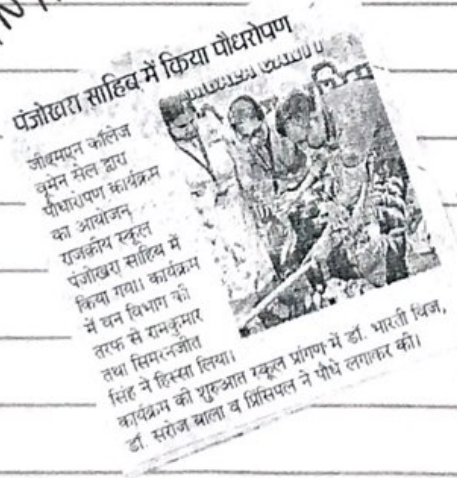 पंजोखरा साहिब में किया पौधरोपण
जीएमएन कॉलेज
वूमेन सेल द्वारा
पौधारोपण कार्यक्रम
का आयोजन
राजकीय स्कूल
पंजोखरा साहिब में
किया गया। कार्यक्रम
में वन विभाग की
तरफ से रामकुमार
तथा सिमरनजीत
सिंह ने हिस्सा लिया।
कार्यक्रम की शुरुआत स्कूल प्रांगण में डॉ. भारती विज,
डॉ. सरोज बाला व प्रिंसिपल ने पौधे लगाकर की।